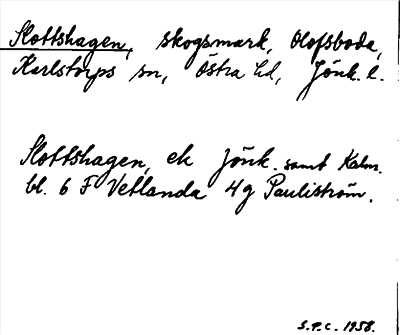 Slottshagen, skogsmark, Olofsboda,
Karlstorps sn, Östra hd, Jönk. l.
Slottshagen, ek Jönk. samt Kalm.
bl. 6 F Vetlanda 4g Pauliström.
S.P.C. 1958.